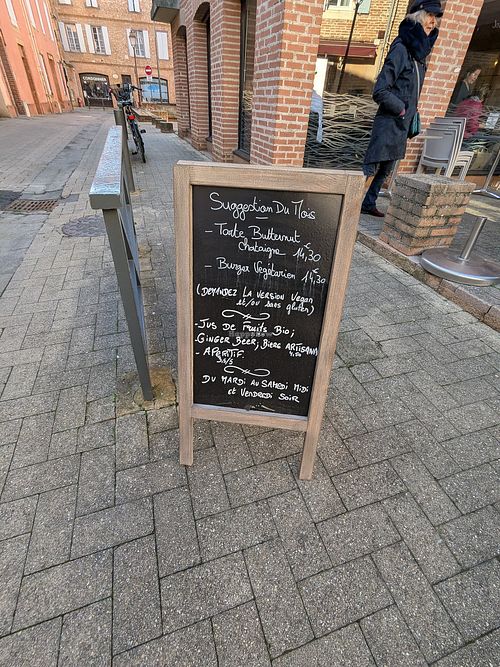 Suggestion Du Mois
- Tarte Butternut
Chataigne 14,30€
- Burger Végétarien 14,30€
(DEMANDEZ LA VERSION VEGAN
et/ou sans gluten)
- Jus De Fruits Bio,
GINGER BEER, Bière ARTISANA
- APÉRITIF.
DU MARDI AU SAMEDI MIDI
et VENDREDI SOIR
CORDONNERIE